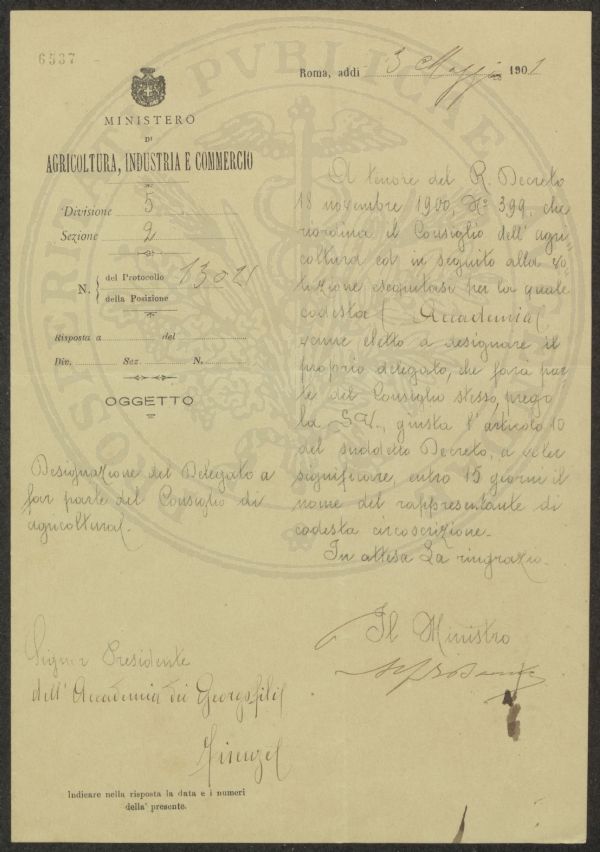 6537
Roma, addi 3 Maggio 1901
MINISTERO
DI
AGRICOLTURA, INDUSTRIA E COMMERCIO
Divisione 5
Sezione 2
N. del Protocollo 13021
della Posizione
Risposta a del
Div. Sez. N.
OGGETTO
Designazione del Delegato a
far parte del Consiglio di
agricoltura.
A tenore del R. Decreto
18 novembre 1900, Nº 399, che
riordina il Consiglio dell'agri
coltura ed in seguito alla vo
tazione eseguitasi per la quale
codesta Accademia
venne eletto a designare il
proprio delegato, che farà par
te del Consiglio stesso, prego
la S.V., giusta l'articolo 10
del suddetto Decreto, a voler
significare, entro 15 giorni il
nome del rappresentante di
codesta circoscrizione.
In attesa La ringrazio.
Il Ministro
Signor Presidente
dell'Accademia dei Georgofili
Firenze
Indicare nella risposta la data e i numeri
della presente.